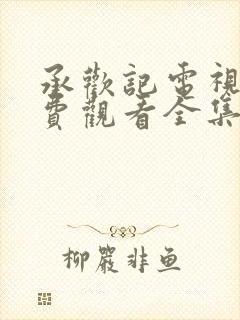 承歡記電視
費觀看全集
柳嚴非魚